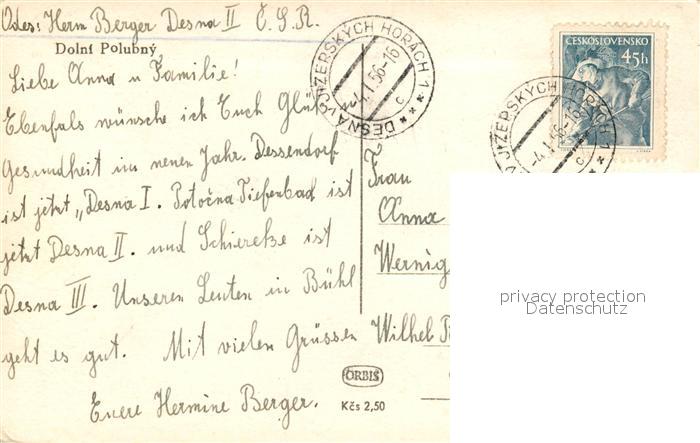 Odes: Herm Berger Desna II Č.S.R.
Dolní Polubný
Liebe Anna u Familie!
Ebenfals wünsche ich Euch Glük u
Gesundheit im neuen Jahr. Dessendorf
ist jetzt „Desna I. Potočna Tiefenbad ist
jetzt Desna II. und Schierekse ist
Desna III. Unseren Leuten in Bühl
geht es gut. Mit vielen Grüssen
Euere Hermine Berger.
DESNÁ V JIZERSKÝCH HORÁCH 1
-4.I.56-16
c
ČESKOSLOVENSKO
45h
V JIZERSKÝCH HORÁCH 1
-4.I.56-16
c
Frau
Anna
Wernig
Wilhel
ORBIS
Kčs 2,50
privacy protection
Datenschutz